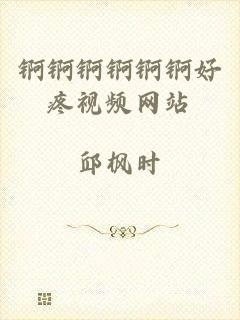 锕锕锕锕锕锕好
疼视频网站
邱枫时